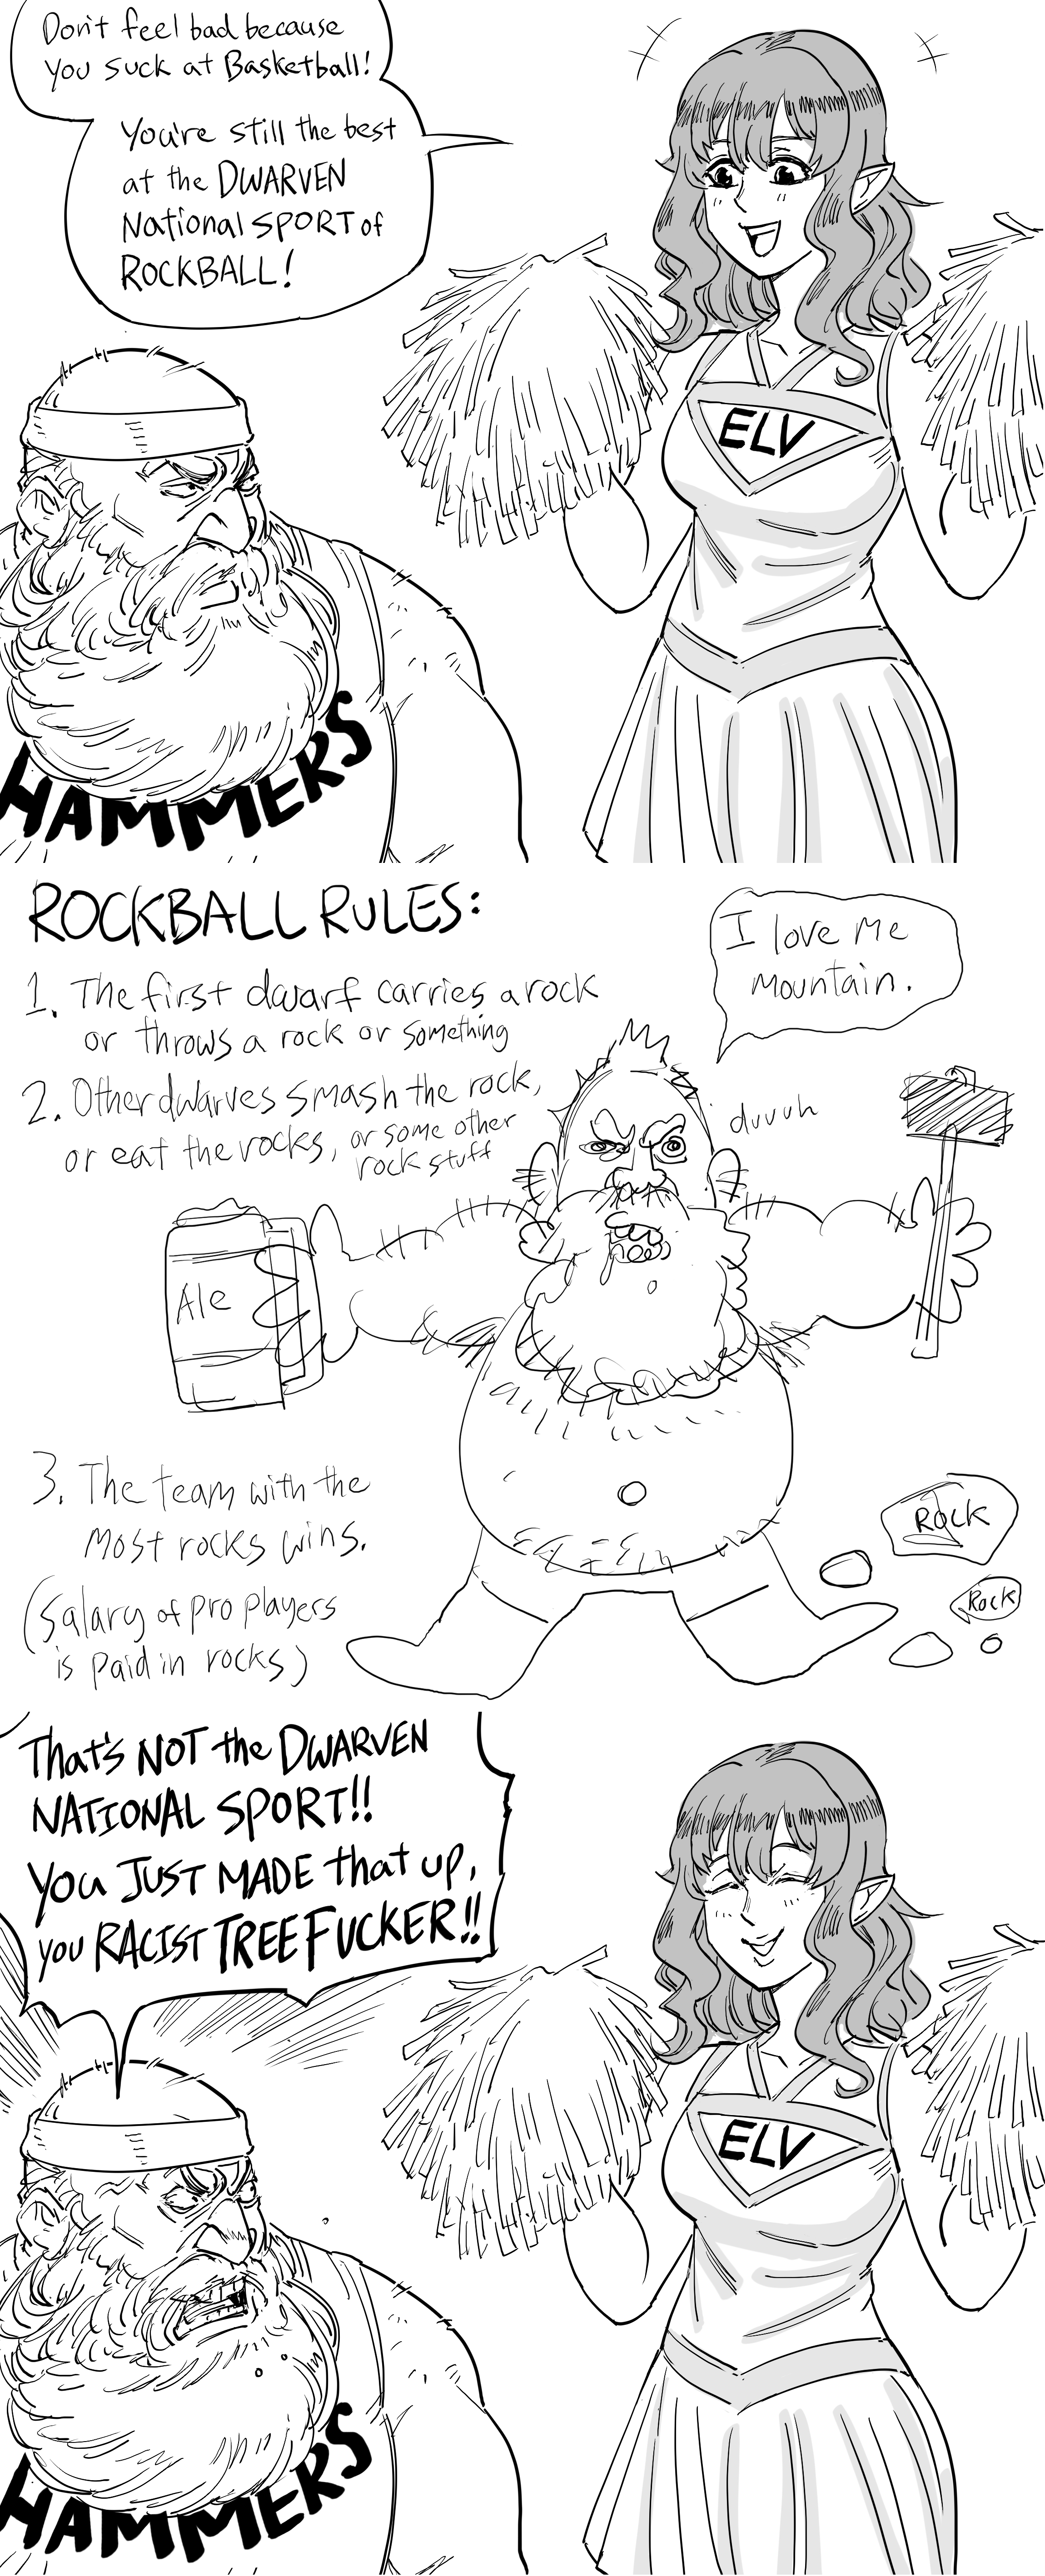 Don't feel bad because
you suck at Basketball!
You're still the best
at the DWARVEN
National SPORT of
ROCKBALL!
ELV
HAMMERS
ROCKBALL RULES:
1. The first dwarf carries a rock
or throws a rock or something
2. Other dwarves smash the rock,
or eat the rocks, or some other
rock stuff
I love me
mountain.
duuuh
Ale
3. The team with the
most rocks wins.
(Salary of pro players
is paid in rocks)
ROCK
Rock
That's NOT the DWARVEN
NATIONAL SPORT!!
You JUST MADE that up,
you RACIST TREE FUCKER!!
ELV
HAMMERS